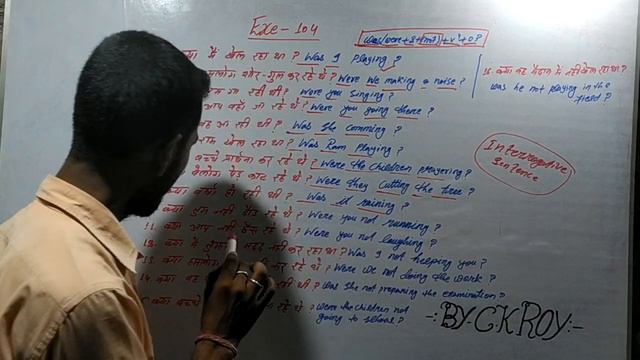 Exe- 104
was/were + S + (not) + v⁴ + o ?
क्या मैं खेल रहा था ? Was I playing ?
शोर-गुल कर रहे थे ? Were we making a noise ?
गा रही थी ? Were you singing ?
आप वहाँ जा रहे थे ? Were you going there ?
आ रही थी ? Was she comming ?
राम खेल रहा था ? Was Ram playing ?
बच्चे प्रार्थना कर रहे थे ? Were the children prayering ?
वेलोग पेड़ काट रहे थे ? Were they cutting the tree ?
क्या वर्षा हो रही थी ? Was it raining ?
क्या तुम नहीं दौड़ रहे थे ? Were you not running ?
11. क्या आप नहीं हँस रहे थे ? Were you not laughing ?
12. क्या मैं मदद नहीं कर रहा था ? Was I not helping you ?
13. क्या हमलोग कर रहे थे ? Were we not doing the work ?
14. क्या वह रही थी ? Was she not preparing the examination ?
क्या बच्चे रहे थे ? Were the children not going to school ?
क्या वह मैदान में नहीं खेल रहा था ?
was he not playing in the field ?
Interrogative
Sentence
-: BY- C K ROY :-